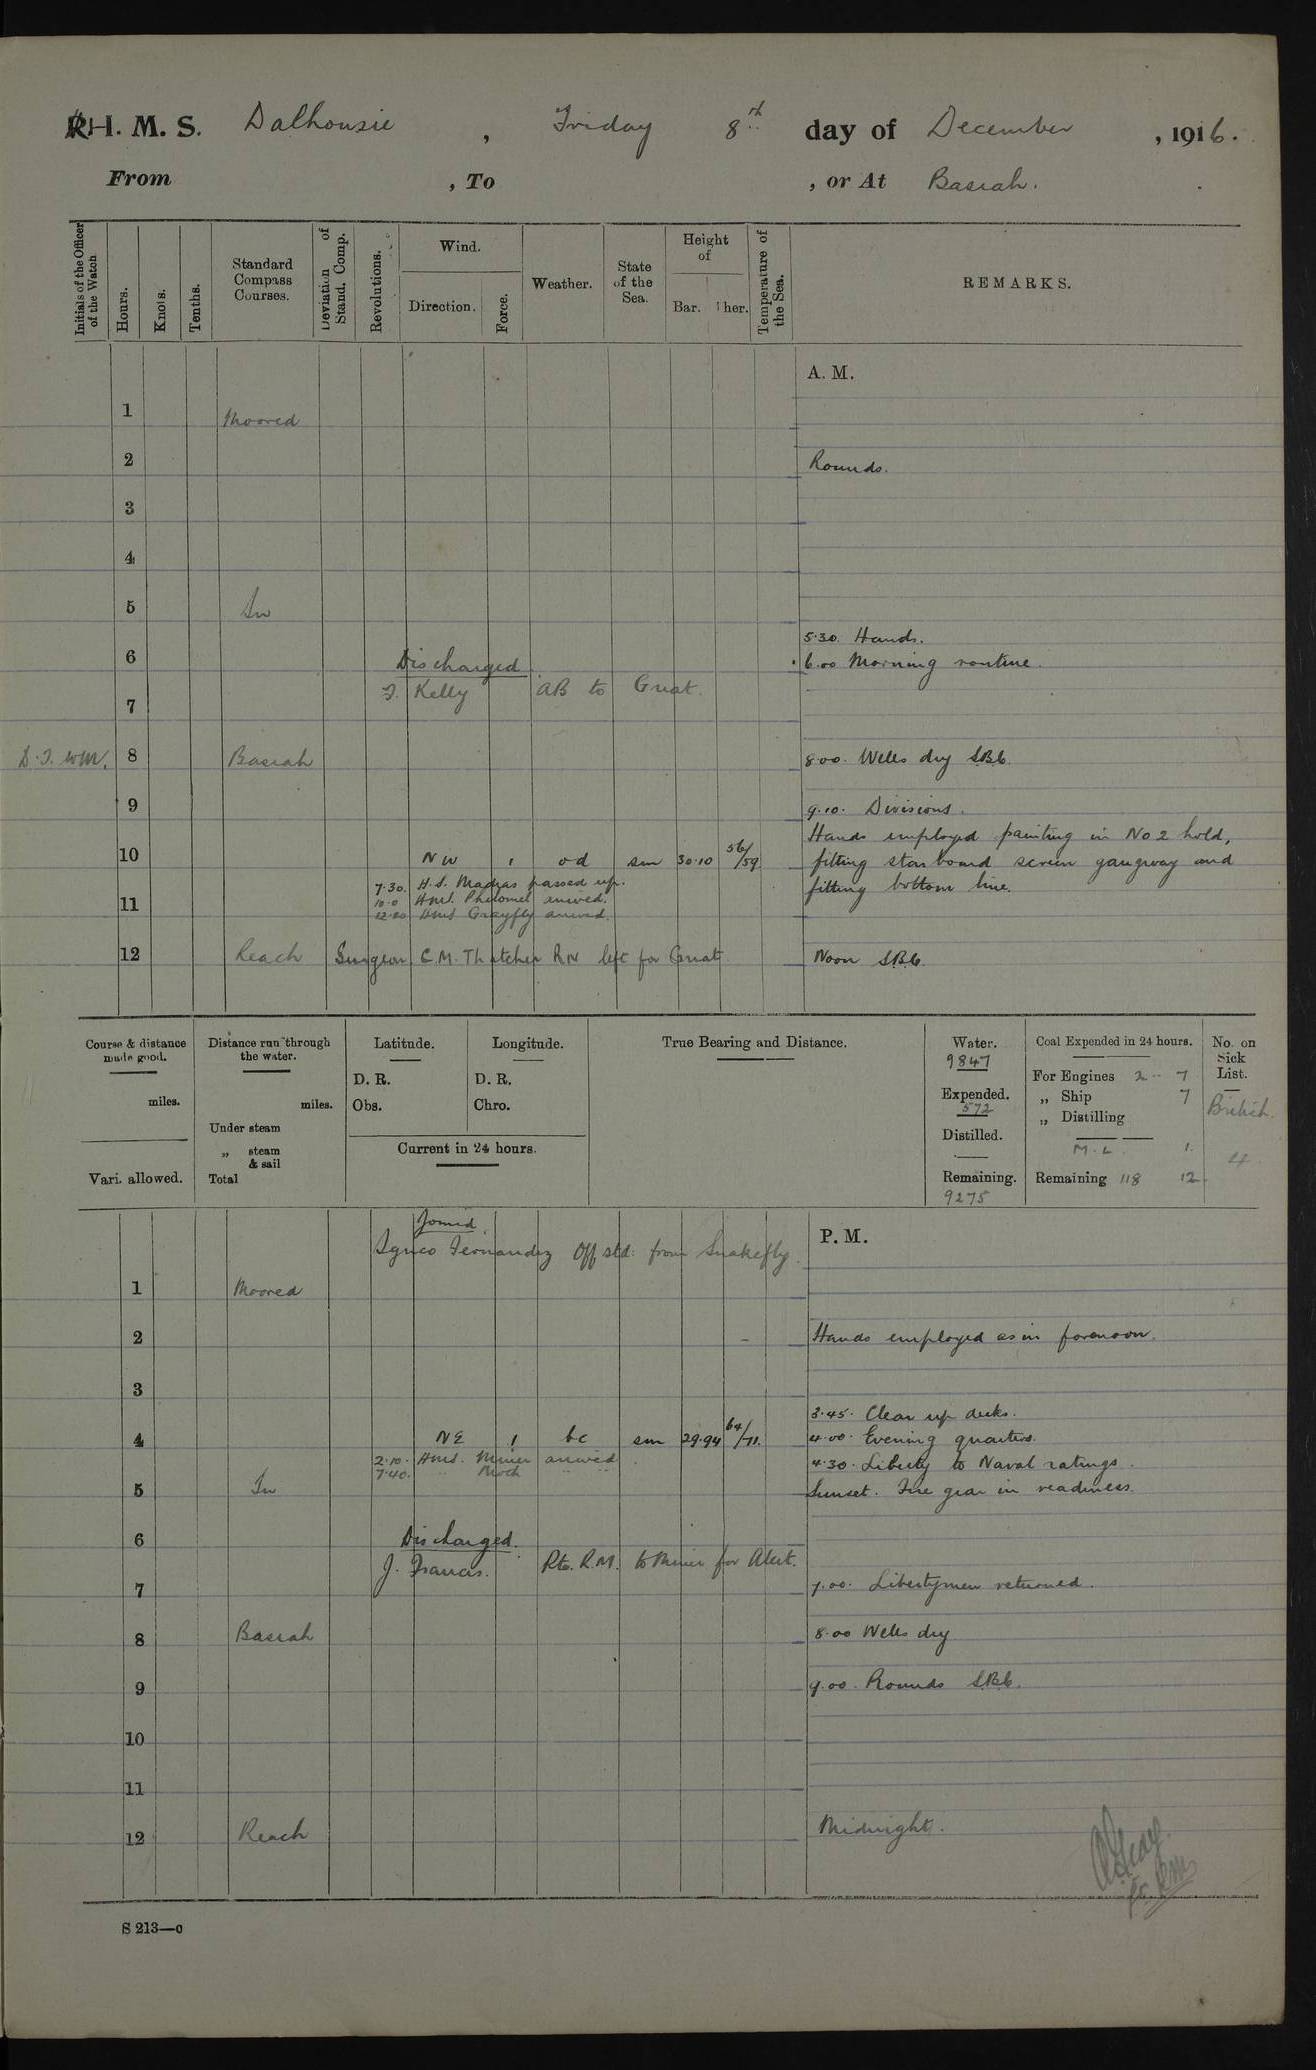 H. M. S. Dalhousie , Friday 8th day of December , 1916.
From , To , or At Basrah.
Initials of the Officer of the Watch
Hours.
Knots.
Tenths.
Standard Compass Courses.
Deviation of Stand. Comp.
Revolutions.
Wind.
Direction.
Force.
Weather.
State of the Sea.
Height of
Bar. Ther.
Temperature of the Sea.
REMARKS.
A. M.
1 Moored
2 Rounds.
3
4
5 In
5.30. Hands.
6 Discharged 6.00 Morning routine.
J. Kelly AB to Gnat.
7
D.J. WM. 8 Basrah 8.00. Wells dry SBC
9 9.10. Divisions.
Hands employed painting in No 2 hold,
10 NW 1 od sm 30.10 56/59 fitting starboard screen gangway and
7.30. H.S. Madras passed up. fitting bottom line.
11 10.0 HMS. Philomel arrived.
12.20 HMS Grayfly arrived.
12 Reach Surgeon C.M. Thatcher RN left for Gnat Noon SBC
Course & distance made good.
miles.
Vari. allowed.
Distance run through the water.
miles.
Under steam
„ steam & sail
Total
Latitude.
D. R.
Obs.
Longitude.
D. R.
Chro.
Current in 24 hours.
True Bearing and Distance.
Water.
9847
Expended.
572
Distilled.
Remaining.
9275
Coal Expended in 24 hours.
For Engines 2 -- 7
„ Ship 7
„ Distilling
M.L. 1.
Remaining 118 12
No. on Sick List.
British.
4.
Joined
Ignco Fernandez Off std: from Snakefly. P. M.
1 Moored
2 Hands employed as in forenoon.
3
3.45. Clear up decks.
4 NE 1 bc sm 29.94 64/71. 4.00. Evening quarters.
2.10. HMS. Miner arrived 4.30. Liberty to Naval ratings.
7.40. " Moth " "
5 In Sunset. Fire gear in readiness.
6 Discharged.
J. Francis. Pte. R.M. to Miner for Alert.
7 7.00. Libertymen returned.
8 Basrah 8.00 Wells dry
9 9.00. Rounds SBC.
10
11
12 Reach Midnight.
S 213—c